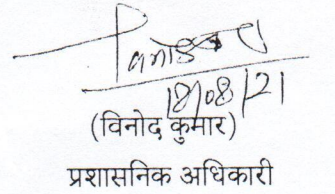 18/08/21
(विनोद कुमार)
प्रशासनिक अधिकारी